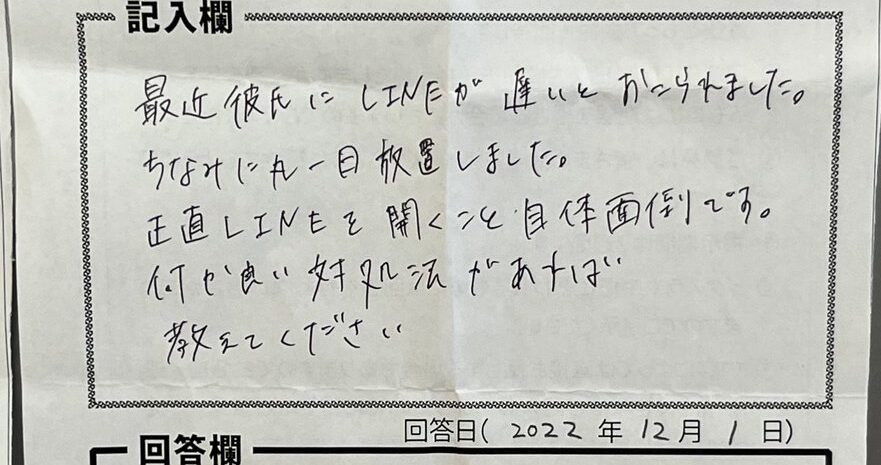 記入欄
最近彼氏にLINEが遅いとおこられました。
ちなみに丸一日放置しました。
正直LINEを開くこと自体面倒です。
何か良い対処法があれば
教えてください
回答日( 2022 年 12 月 1 日)
回答欄